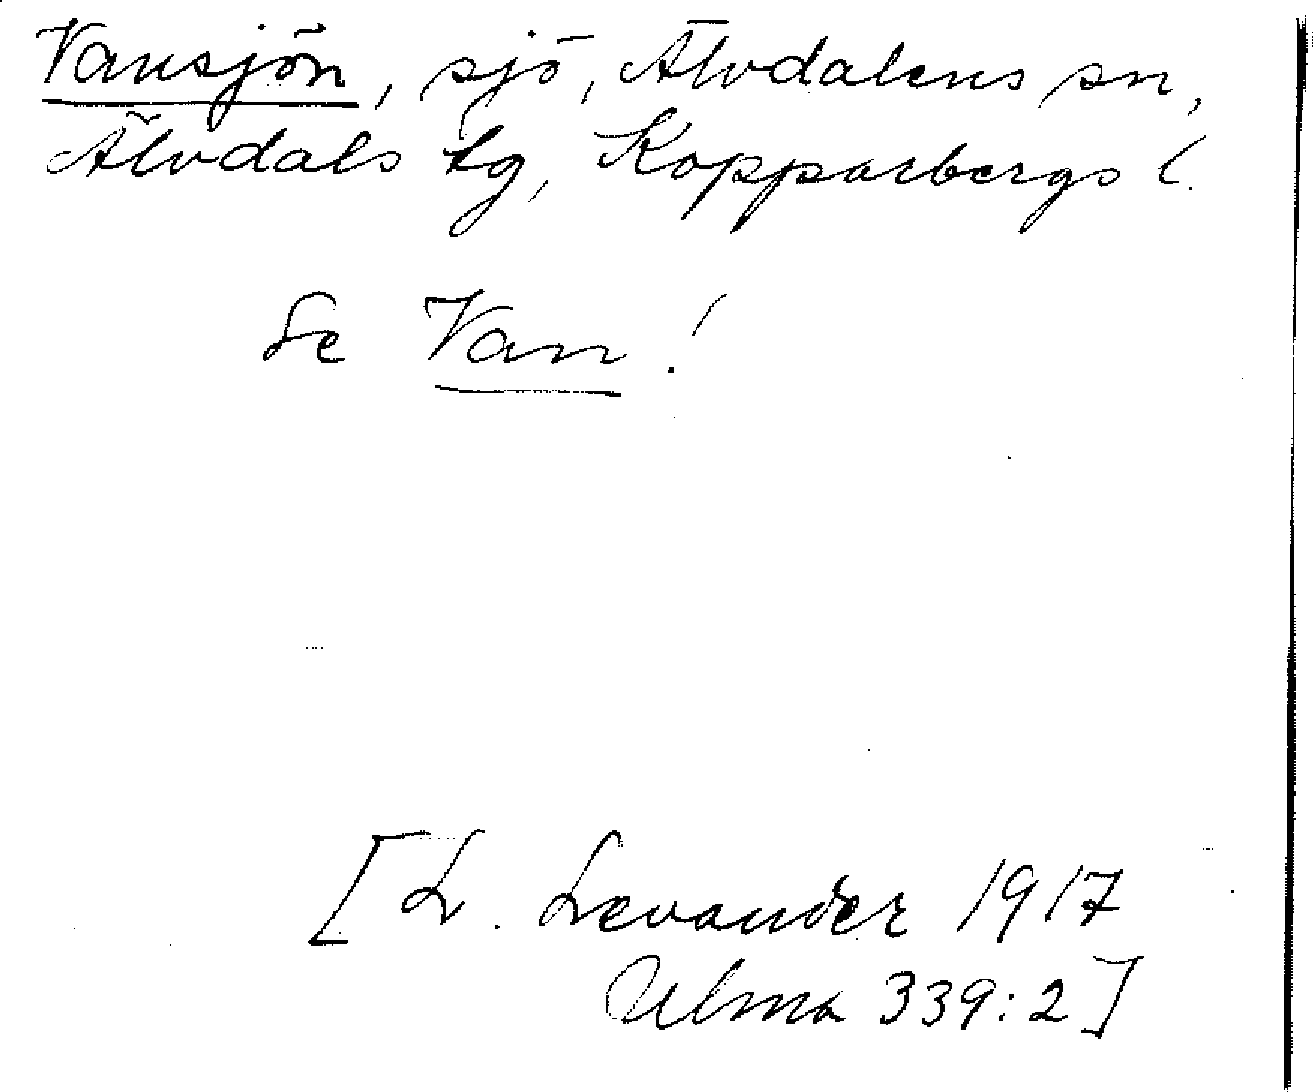 Vansjön, sjö, Älvdalens sn,
Älvdals tg, Kopparbergs l.
Se Van!
[L. Levander 1917
Ulma 339:2]